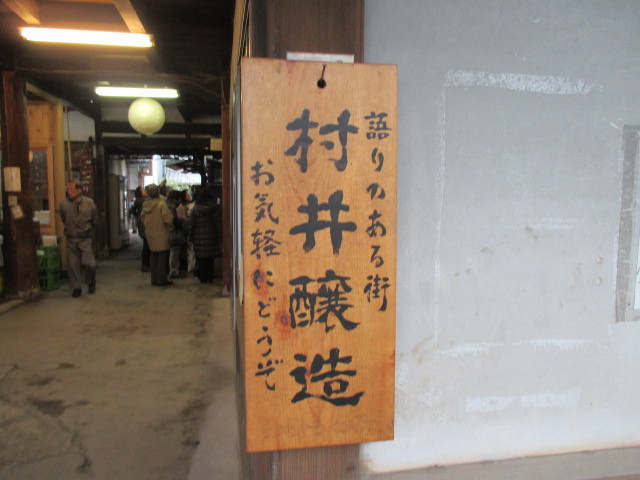 語りのある街
村井醸造
お気軽にどうぞ